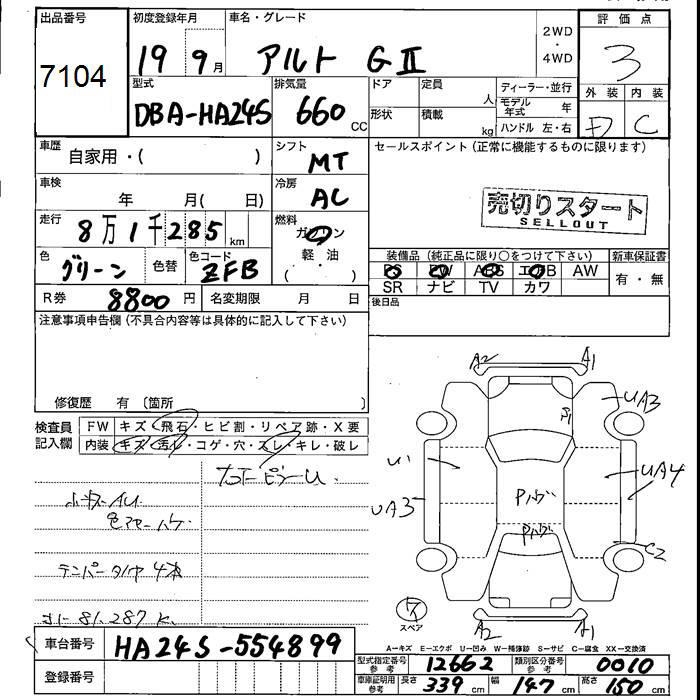 出品番号 初度登録年月 車名・グレード 2WD・4WD 評価点
7104 19 9月 アルト GⅡ 3
型式 排気量 ドア 定員 人 ディーラー・並行 外装 内装
DBA-HA24S 660 CC 形状 積載 kg モデル年式 年 C
ハンドル 左・右
車歴 自家用・( ) シフト MT セールスポイント(正常に機能するものに限ります)
車検 年 月( 日) 冷房 AC
売切りスタート
SELLOUT
走行 8万1千285km 燃料 ガソリン
軽・油
( )
色 グリーン 色替 色コード ZFB
装備品(純正品に限り○をつけて下さい) 新車保証書
PS PW ABS エアB AW 有・無
SR ナビ TV カワ
R券 8800円 名変期限 月 日 後日品
注意事項申告欄(不具合内容等は具体的に記入して下さい)
修復歴 有〔箇所 〕
検査員記入欄 FW キズ・飛石・ヒビ割・リペア跡・X要
内装 キズ・汚レ・コゲ・穴・スレ・キレ・破レ
A2 A1
A1 UA3
U1 UA4
UA3
C2
テンパータイヤ 4本
スペア
A2 A1
A-キズ E-エクボ U-凹み W-補修跡 S-サビ C-腐食 XX-交換済
車台番号 HA24S-554899
型式指定番号 参考 12662 類別区分番号 参考 0010
登録番号
車庫証明用 参考 長さ 339 cm 幅 147 cm 高さ 150 cm